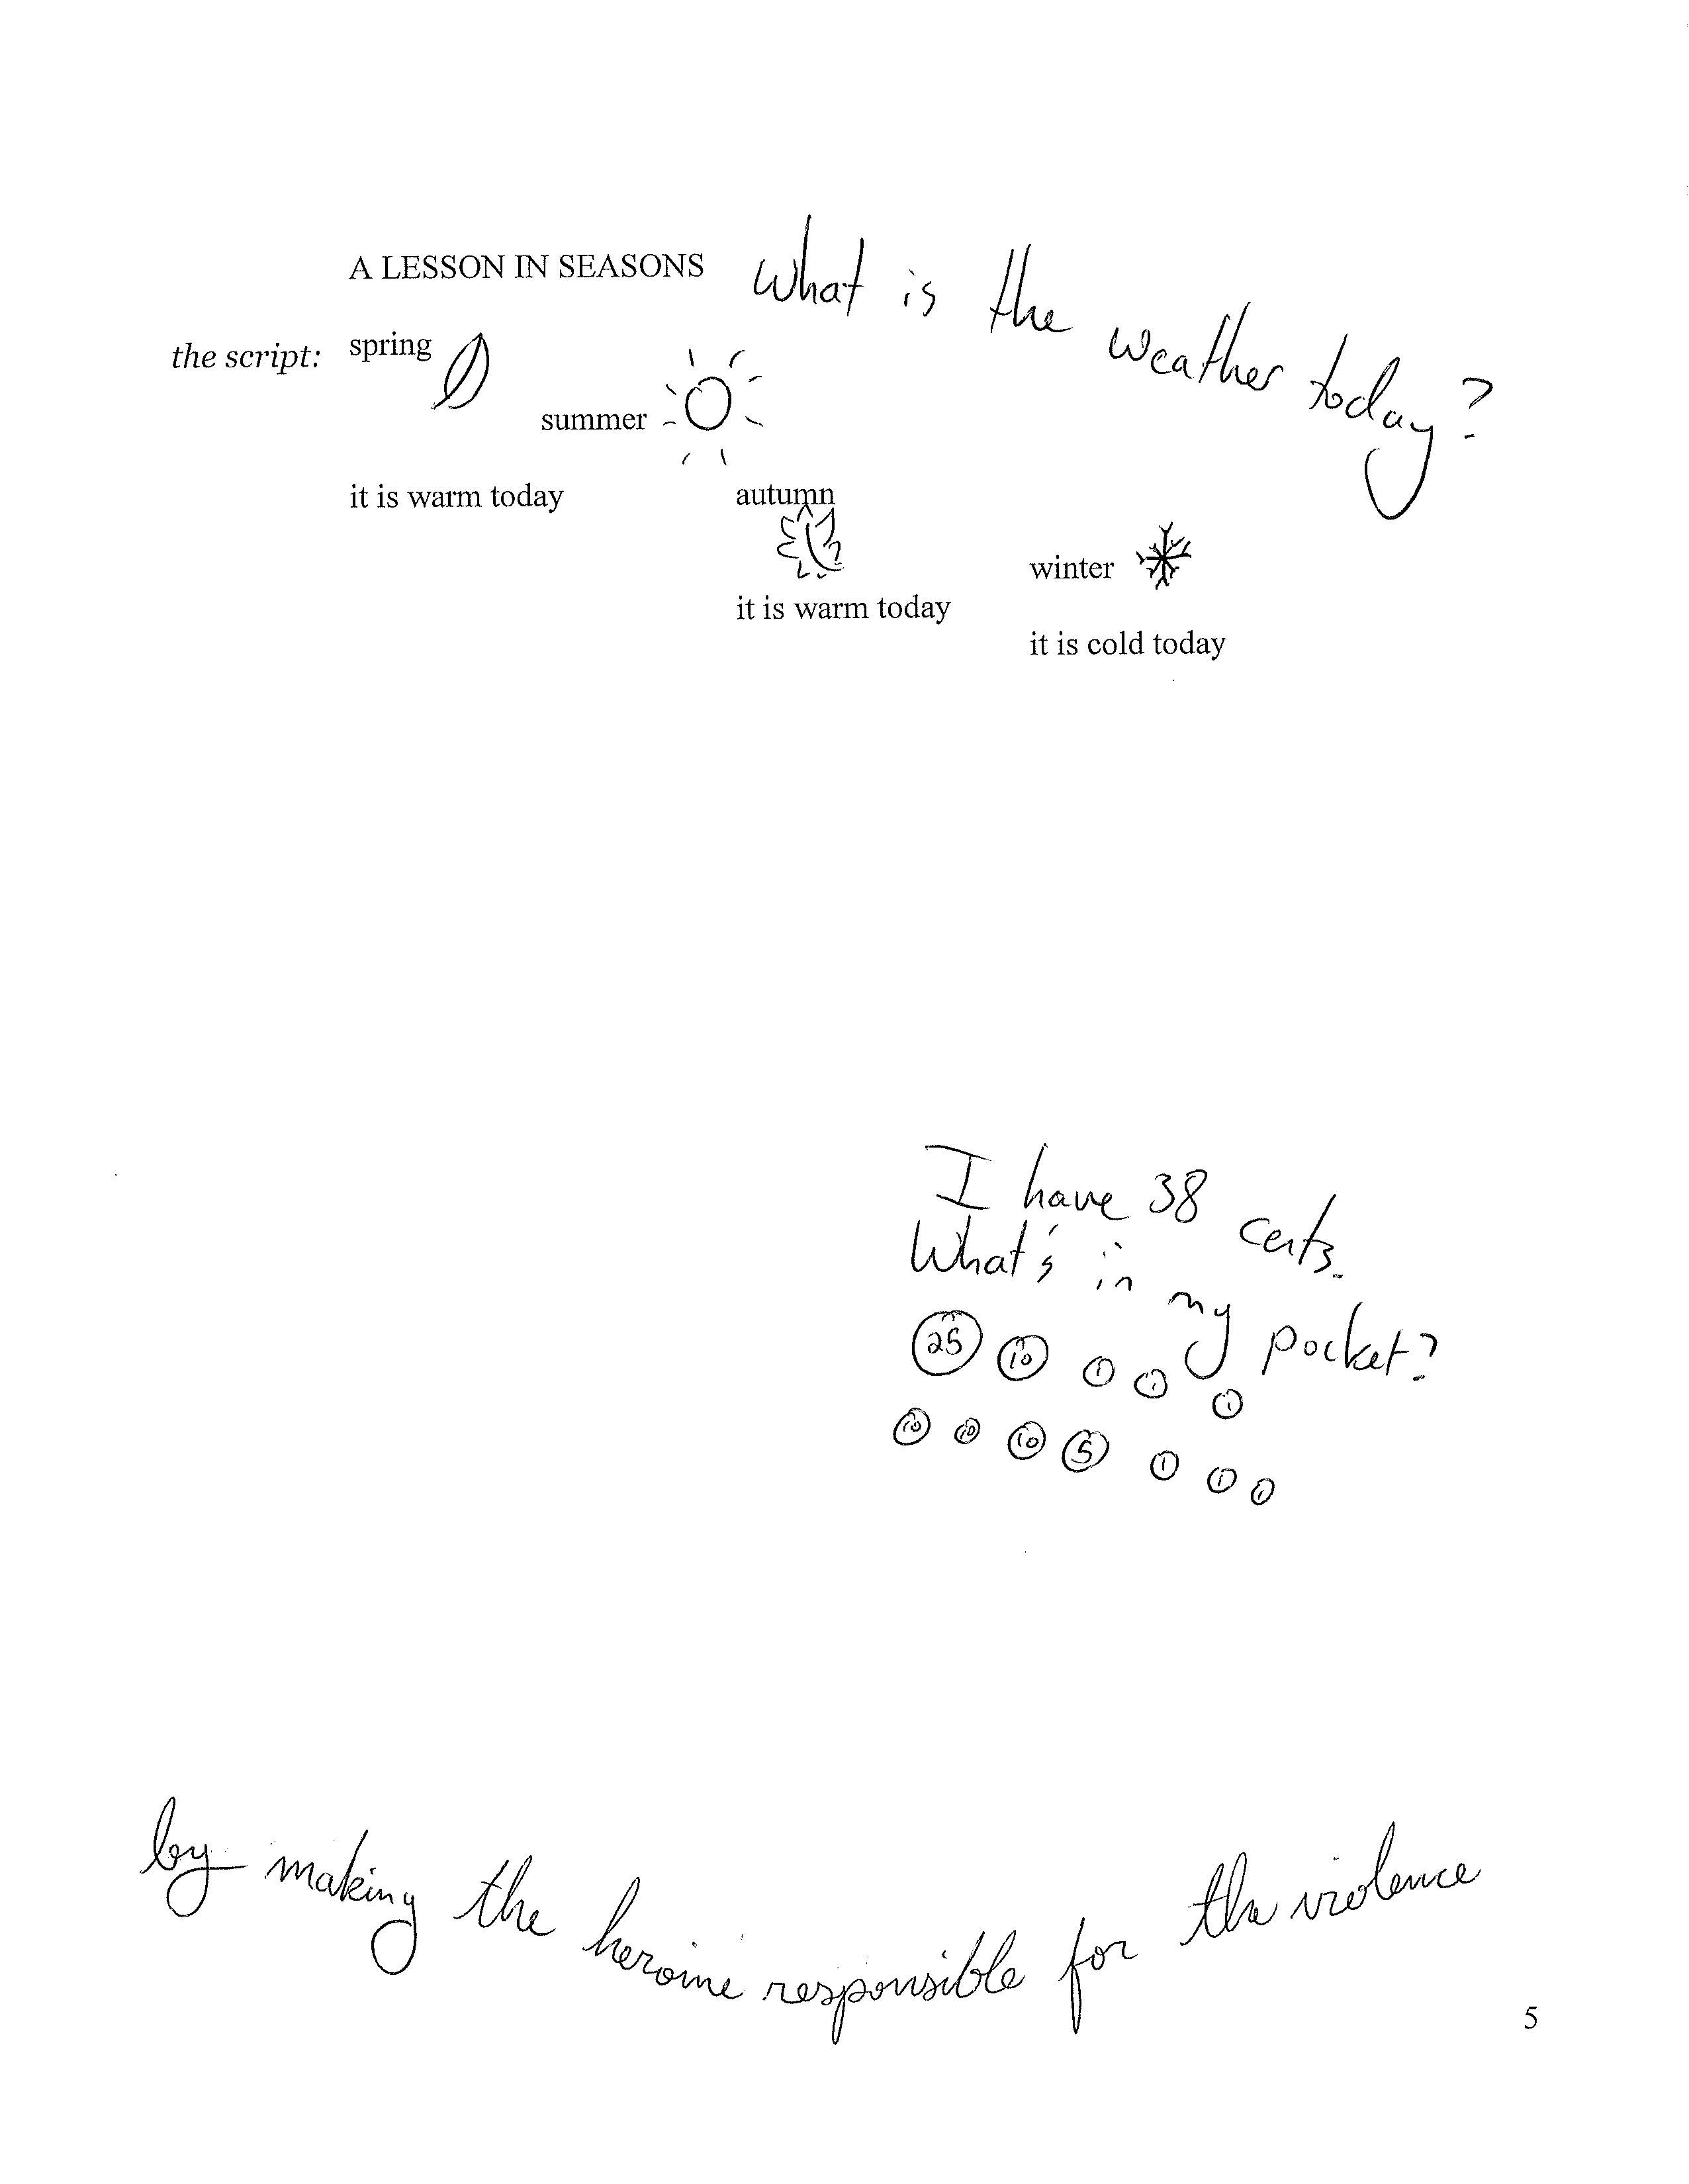 A LESSON IN SEASONS What is the weather today?
the script: spring
summer
it is warm today autumn
winter
it is warm today
it is cold today
I have 38 cents.
What's in my pocket?
25 10 1 1 1
10 10 10 5 1 1 1
by making the heroine responsible for the violence
5